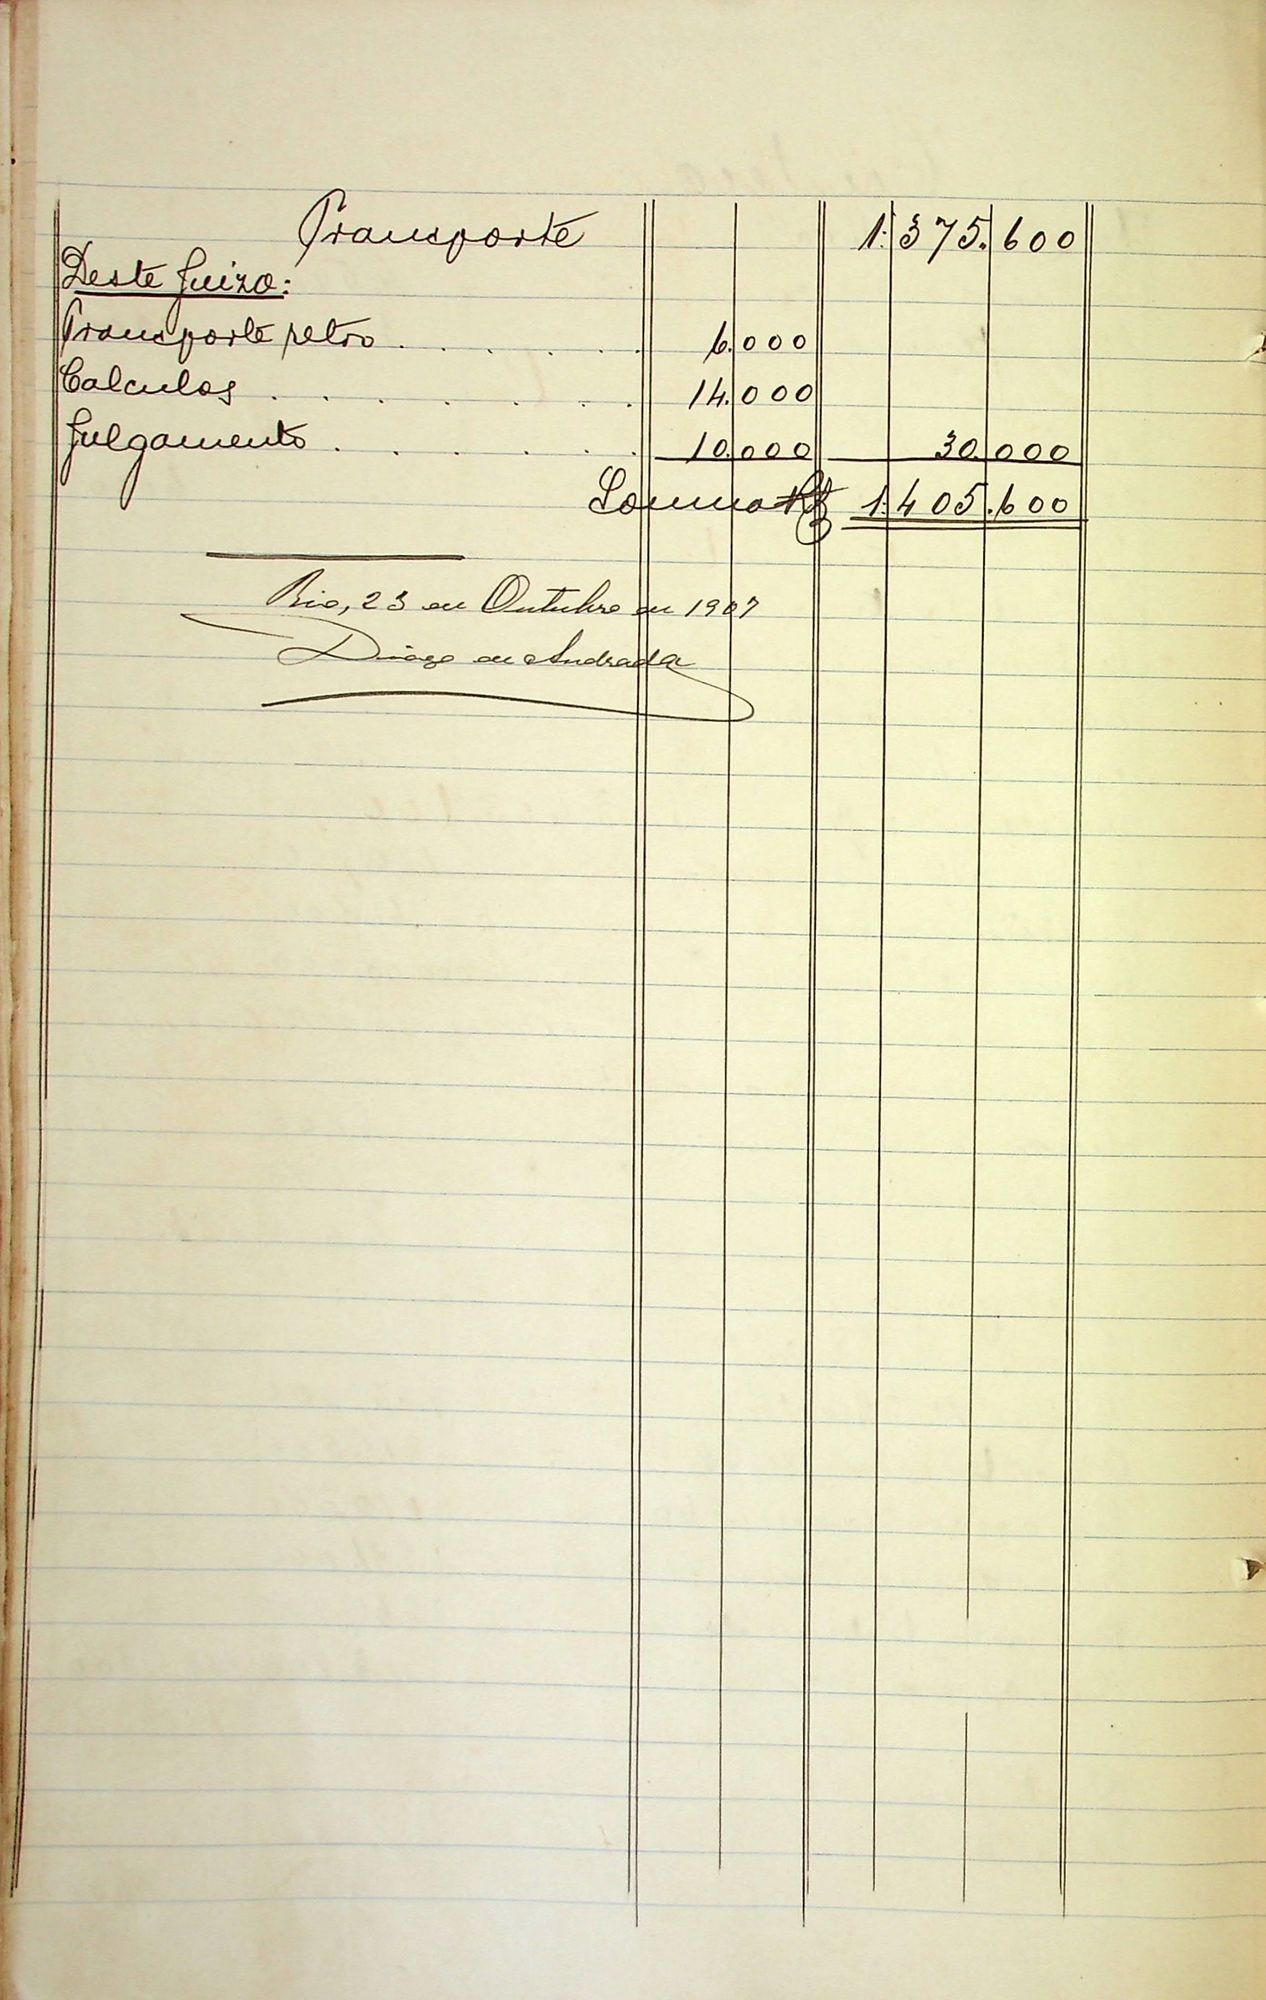 Transporte 1:375.600
Deste Juizo:
Transporte retro . . . . . . 6.000
Calculos . . . . . . . 14.000
Julgamento . . . . . . 10.000 30.000
Somma R$ 1:405.600
Rio, 23 de Outubro de 1907
Diogo de Andrada